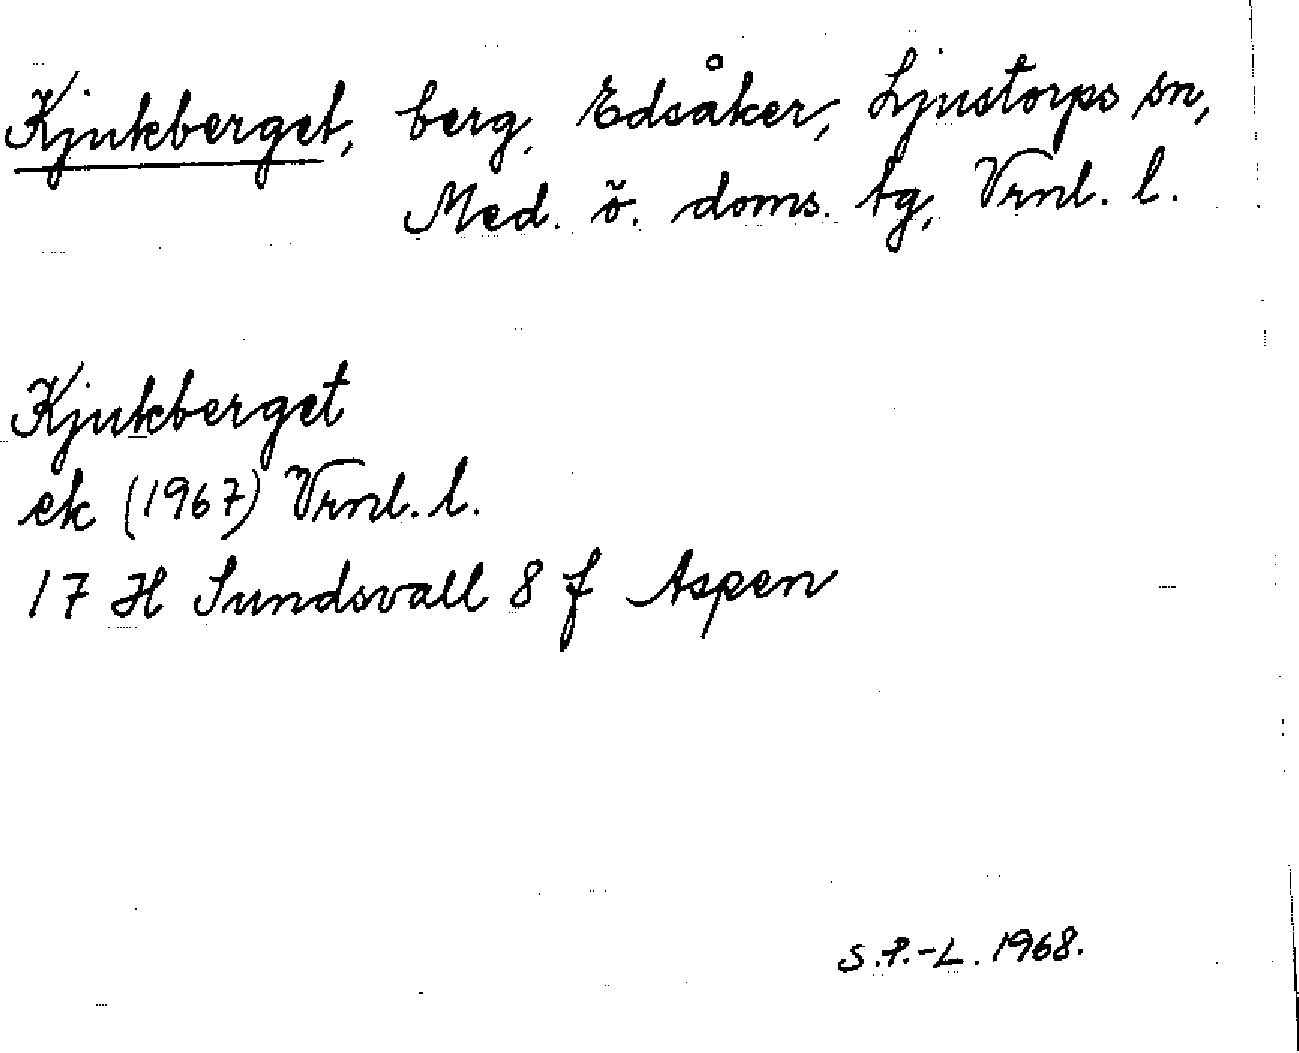 Kjukberget, berg, Edsåker, Ljustorps sn,
Med. ö. doms. tg, Vrnl. l.
Kjukberget
ek (1967) Vrnl. l.
17 H Sundsvall 8 f Aspen
S.P.-L. 1968.